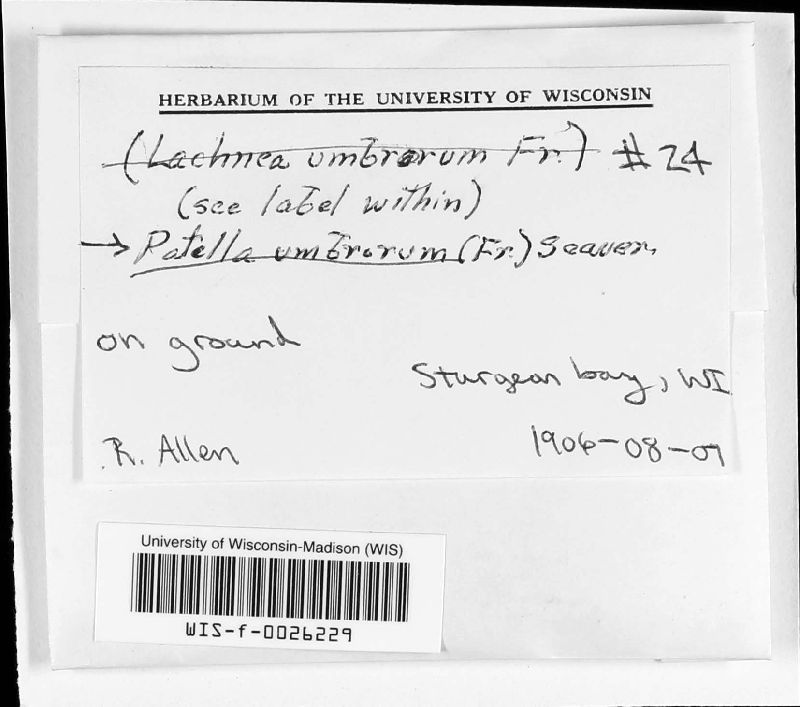 HERBARIUM OF THE UNIVERSITY OF WISCONSIN
(Lachnea umbrorum Fr.) #24
(see label within)
→ Patella umbrorum (Fr.) Seaver.
on ground
Sturgeon bay, WI
R. Allen
1906-08-07
University of Wisconsin-Madison (WIS)
WIS-f-0026229